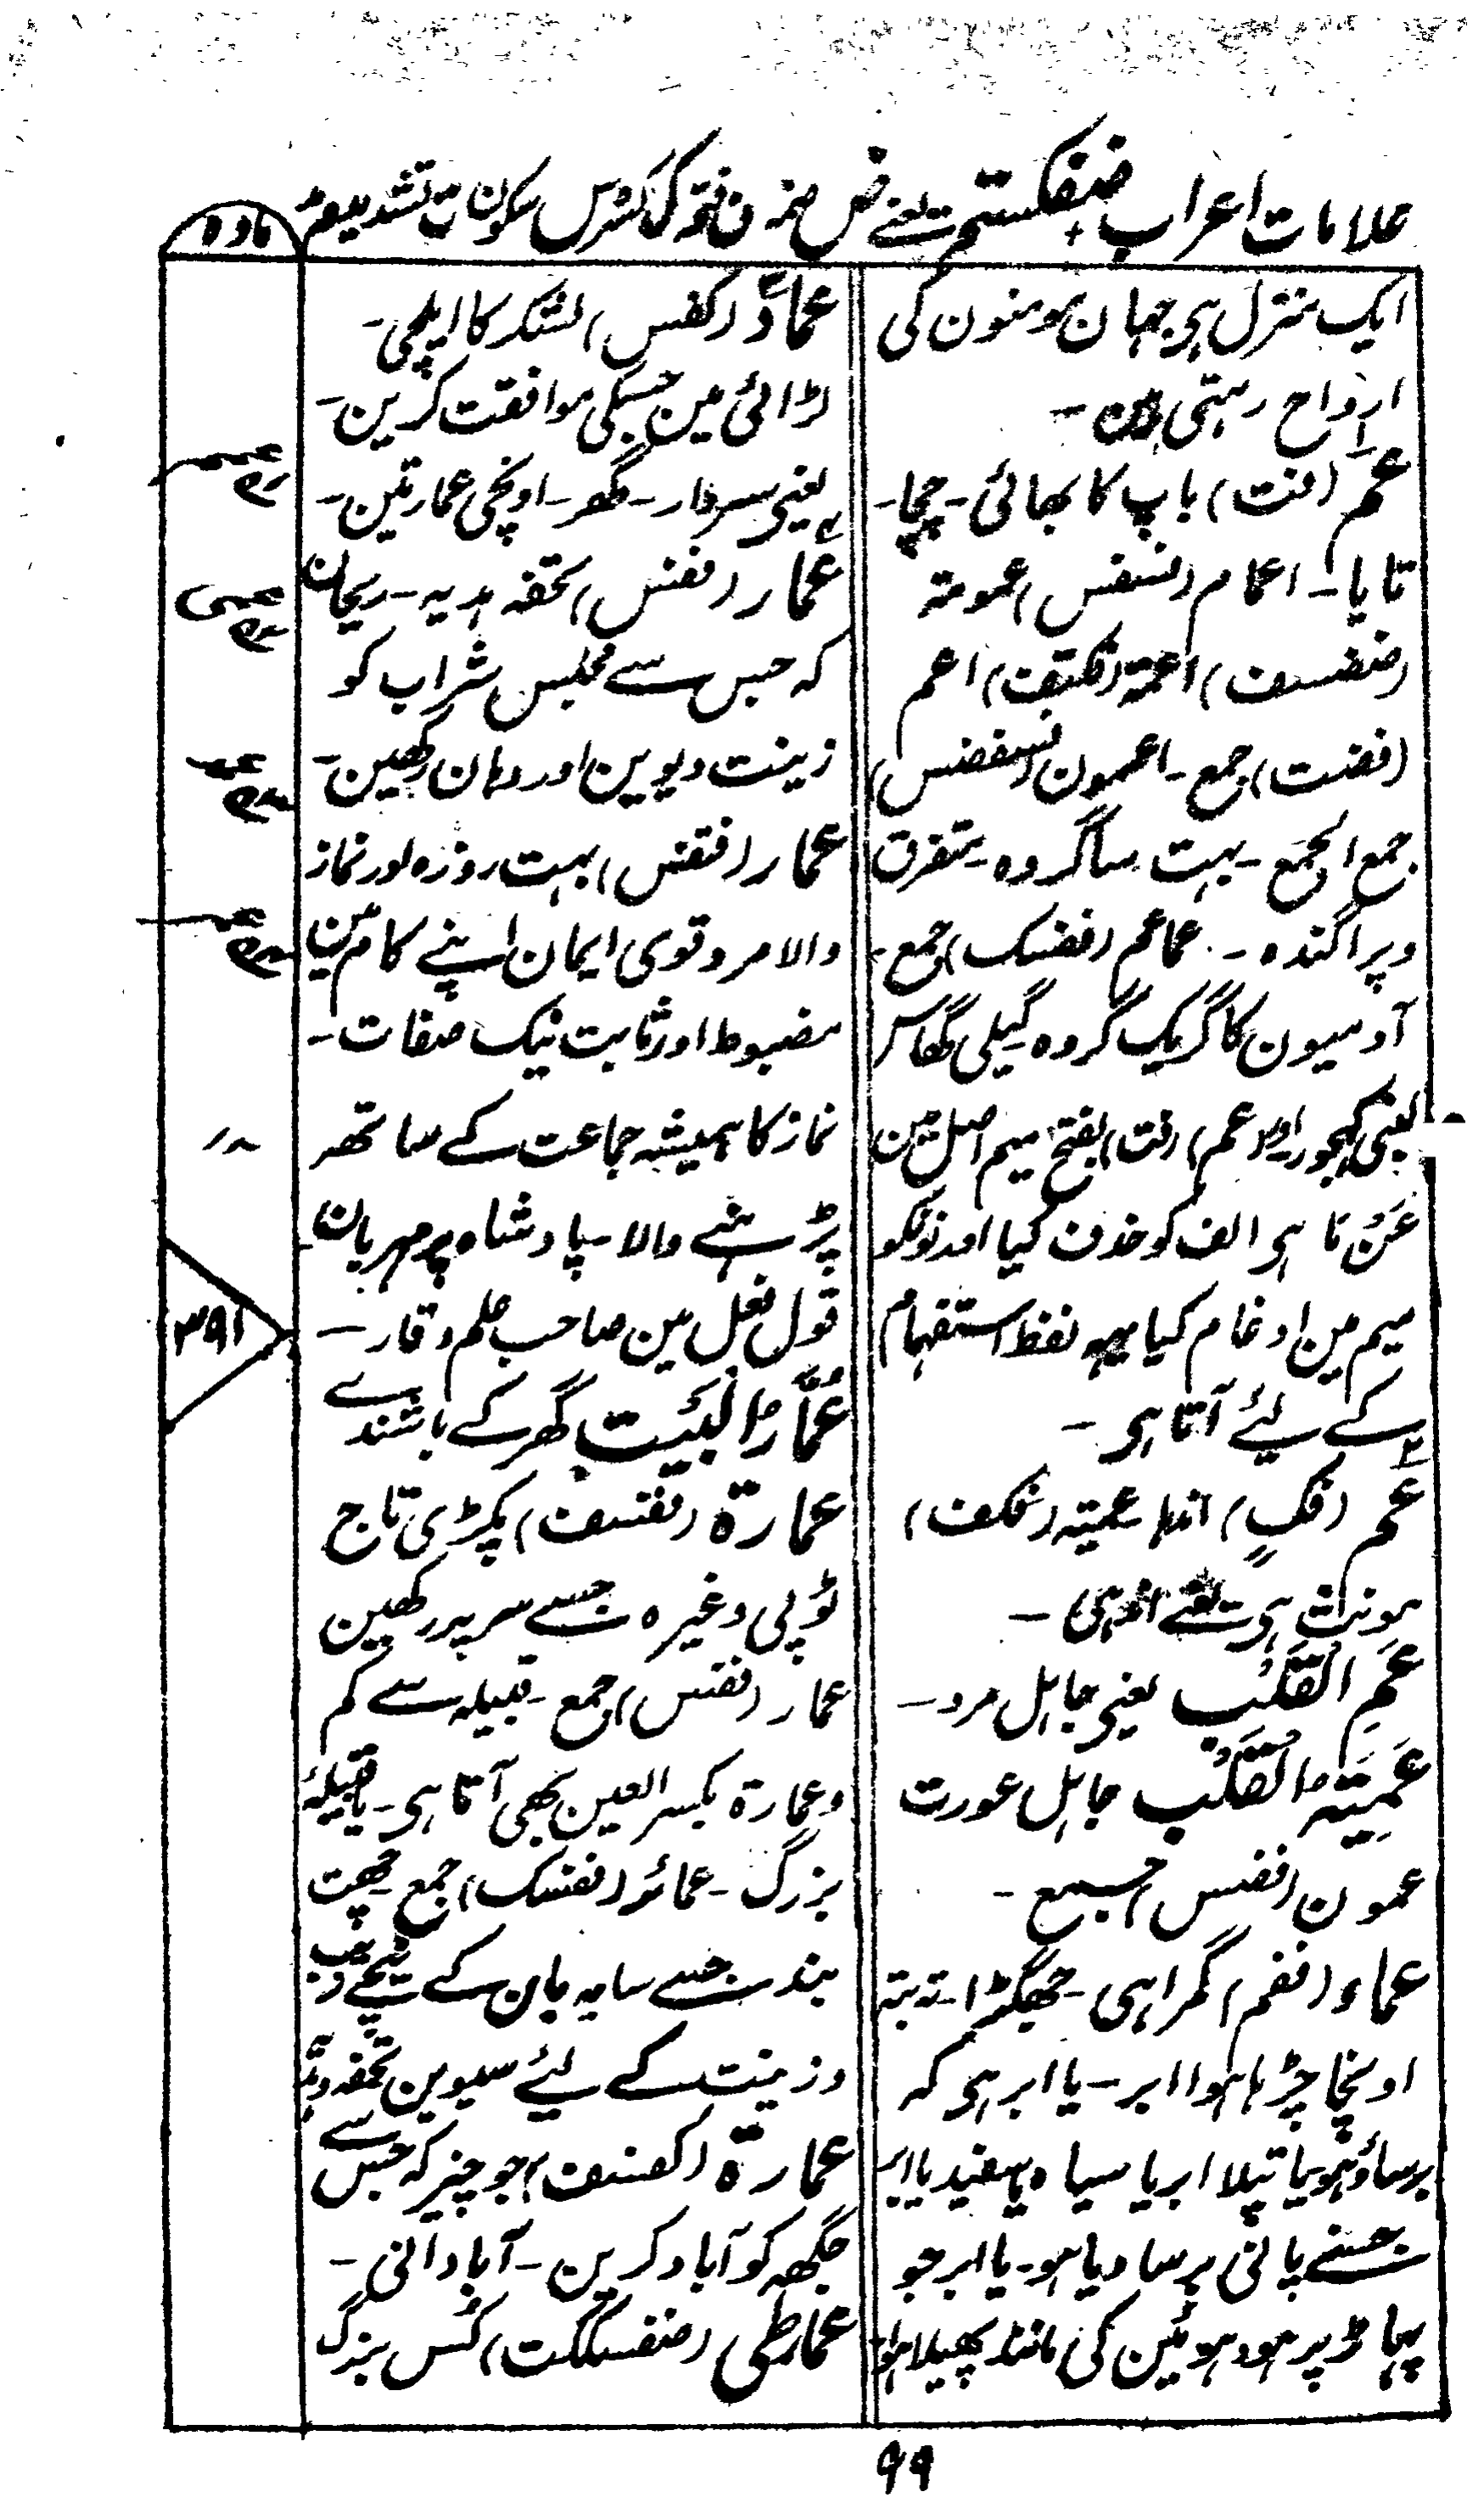 علامات اعراب ضفکستم یعنے ض ضمہ ف فتح ک کسرہ س سکون ت تشدید م مد
مادہ
ایک منزل ہی جہان مومنون کی
ارواح رہتی ہین -
عم (فت) باپ کا بھائی - چچا -
تایا - اعمام (فسفس) عمومۃ
(ضضسف) اعمۃ (فکتف) اعم
(فضت) جمع - اعمون (فسفضس)
جمع الجمع - بہت سا گروہ - متفرق
و پراگندہ - عماعم (ففسک) جمع -
آدمیون کا گروہ گیلی گھاس
یعنی کہجور اور عم (فت) بفتح میم اصل مین
عَنْ مَا ہی الف کو حذف کیا اور نونکو
میم مین ادغام کیا یہہ لفظ استفہام
کے لئے آتا ہی -
عم (فکٍ) اندہا عمیتہ (فکف)
مونث ہی یعنے اندہی -
عَمِ الْقَلْب یعنی جاہل مرد -
عَمِیَۃُ الْقَلْب جاہل عورت
عمون (فضس) جمع -
عماء (ففم) گمراہی - جھگڑا - تہ بتہ
اونچا چڑہا ہوا ابر - یا ابر ہی کہ
برساؤ ہو یا پتلا ابر یا سیاہ یا سفید یا ابر
جسنے پانی برسا دیا ہو - یا ابر جو
پہاڑ پر ہو دہوئین کی مانند پھیلا ہوا
عمادٌ (کفس) لشکر کا ایلچی -
لڑائی مین جسکی موافقت کرین -
یعنی سردار - گھر - اونچی عمارتین -
عمار (ففس) تحفہ ہدیہ - ریحان
کہ جس سے مجلس شراب کو
زینت دیوین اور وہان رکھین -
عمار (فتفس) بہت روزہ اور نماز
والا مرد قوی ایمان اپنے کام مین
مضبوط اور ثابت نیک صفات -
نماز کا ہمیشہ جماعت کے ساتھہ
پڑہنے والا - پادشاہ پر مہربان
قول فعل مین صاحب حلم وقار -
عُمَّارُ الْبَیْت گھر کے باشندے
عمارۃ (ففسف) پگڑی تاج
ٹوپی وغیرہ جسے سر پر رکھین
عمار (ففس) جمع - قبیلہ سے کم
و عمارۃ بکسر العین بھی آتا ہی - یا قبیلۂ
بزرگ - عمائر (ففسک) جمع - چھت
بند جسے سایہ بان کے نیچے
و زینت کے لئے سیوین تحفہ
عمارۃ (کفسف) جو چیز کہ جس سے
جگہہ کو آباد کرین - آبادانی -
عمارطی (ضفسککت) کس بزرگ
عم
عم
عم
عم
۳۹۱
۹۹